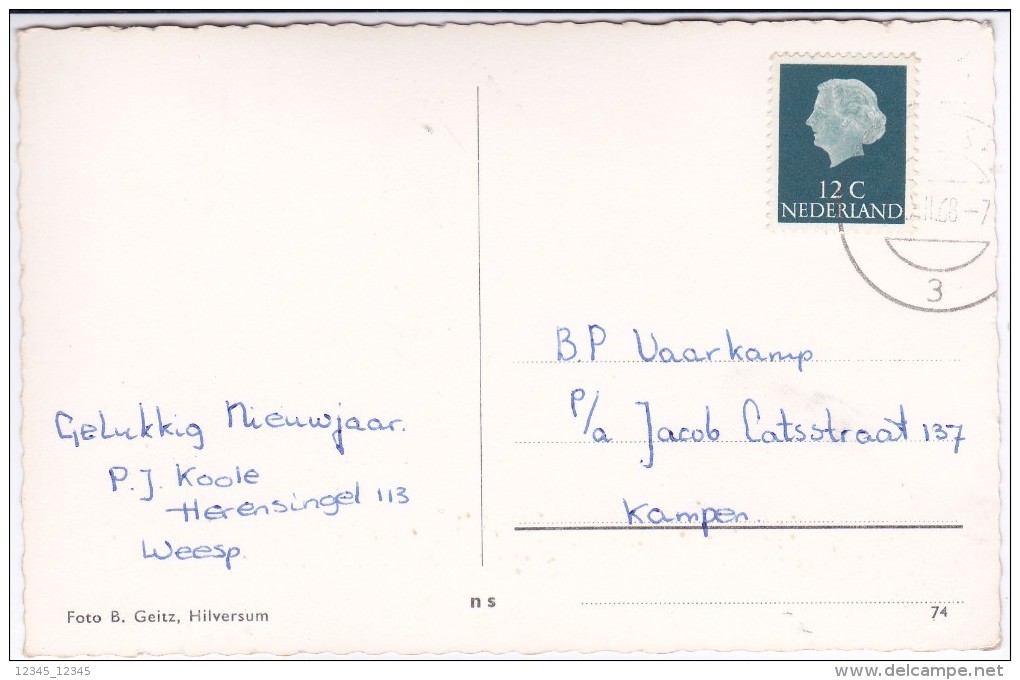 12 C
NEDERLAND
II.68-7
3
B.P Vaarkamp
P/a Jacob Catsstraat 137
Kampen.
Gelukkig Nieuwjaar.
P.J. Koole
Herensingel 113
Weesp.
Foto B. Geitz, Hilversum
ns
74
12345_12345
www.delcampe.net